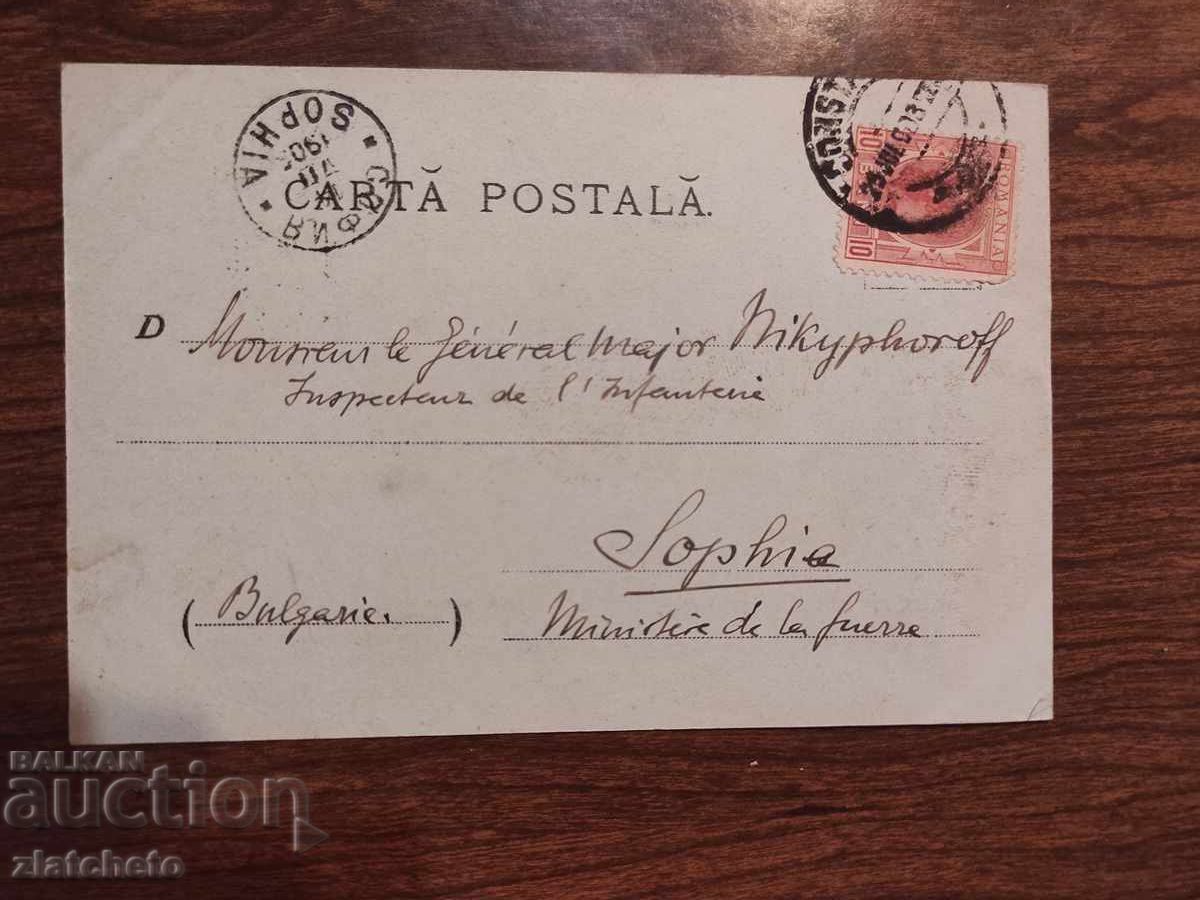 SOPHIA
СОФИЯ
CARTĂ POSTALĂ.
ROMANIA
10
10
D Monsieur le Général major Nikyphoroff
Inspecteur de l'Infanterie
Sophia
(Bulgarie.)
Ministère de la guerre
BALKAN
auction
zlatcheto